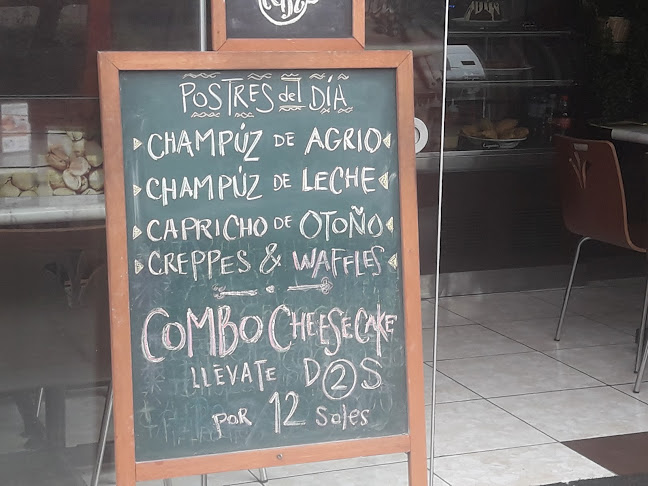 POSTRES del DÍA
CHAMPÚZ DE AGRIO
CHAMPÚZ DE LECHE
CAPRICHO DE OTOÑO
CREPPES & WAFFLES
COMBO CHEESECAKE
LLÉVATE DOS 2
POR 12 Soles